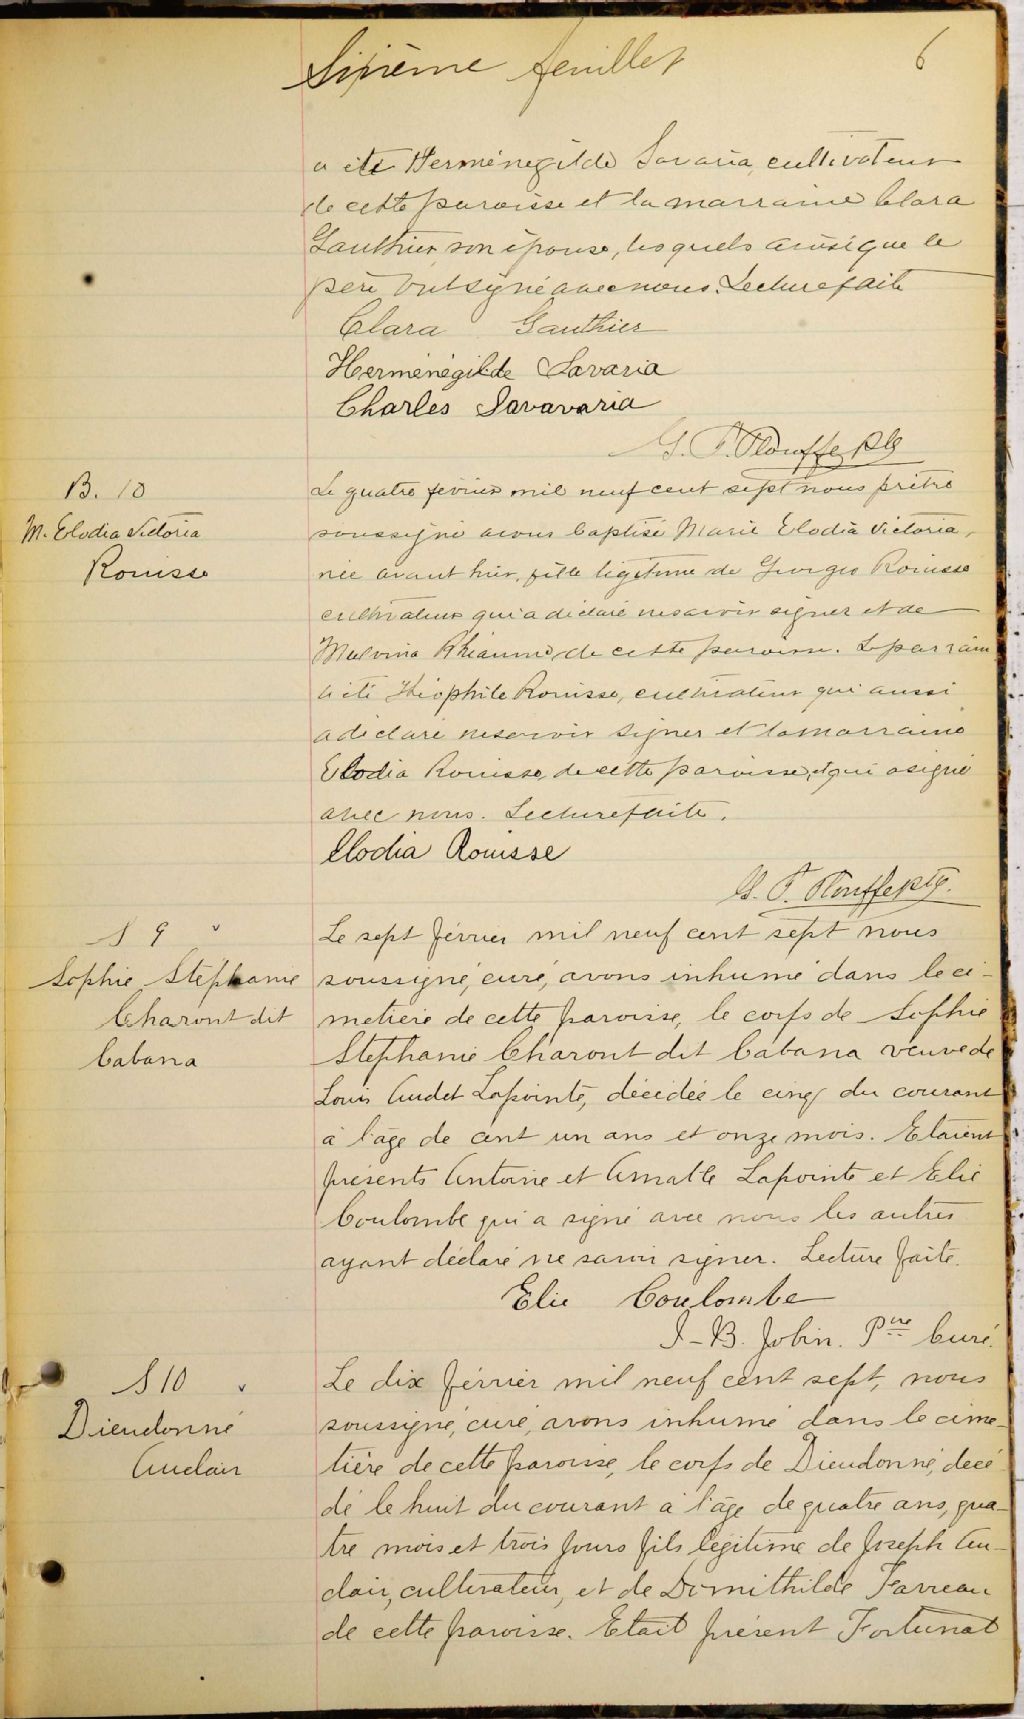 Sixième feuillet 6
a été Herménégilde Savaria, cultivateur
de cette paroisse et la marraine Clara
Gauthier son épouse, lesquels ainsi que le
père ont signé avec nous. Lecture faite
Clara Gauthier
Herménégilde Savaria
Charles Savavaria
G. P. Plouffe ptre
B. 10
M. Elodia Victoria
Rouisse
Le quatre février mil neuf cent sept nous prêtre
soussigné avons baptisé Marie Elodia Victoria,
née avant hier, fille légitime de Georges Rouisse
cultivateur qui a déclaré ne savoir signer et de
Malvina Rhéaume de cette paroisse. Le parrain
a été Théophile Rouisse, cultivateur qui aussi
a déclaré ne savoir signer et la marraine
Elodia Rouisse, de cette paroisse, et qui a signé
avec nous. Lecture faite.
Elodia Rouisse
G. P. Plouffe ptre.
S 9
Sophie Stéphanie
Charont dit
Cabana
Le sept février mil neuf cent sept nous
soussigné, curé, avons inhumé dans le ci-
metière de cette paroisse, le corps de Sophie
Stéphanie Charont dit Cabana veuve de
Louis Audet Lapointe, décédée le cinq du courant
à l'âge de cent un ans et onze mois. Etaient
présents Antoine et Amable Lapointe et Elie
Coulombe qui a signé avec nous les autres
ayant déclaré ne savoir signer. Lecture faite.
Elie Coulombe
J-B. Jobin. Ptre Curé.
S 10
Dieudonné
Auclair
Le dix février mil neuf cent sept, nous
soussigné, curé, avons inhumé dans le cime-
tière de cette paroisse, le corps de Dieudonné, décé-
dé le huit du courant à l'âge de quatre ans, qua-
tre mois et trois jours fils légitime de Joseph Au-
clair, cultivateur, et de Dimithilde Favreau
de cette paroisse. Etait présent Fortunat